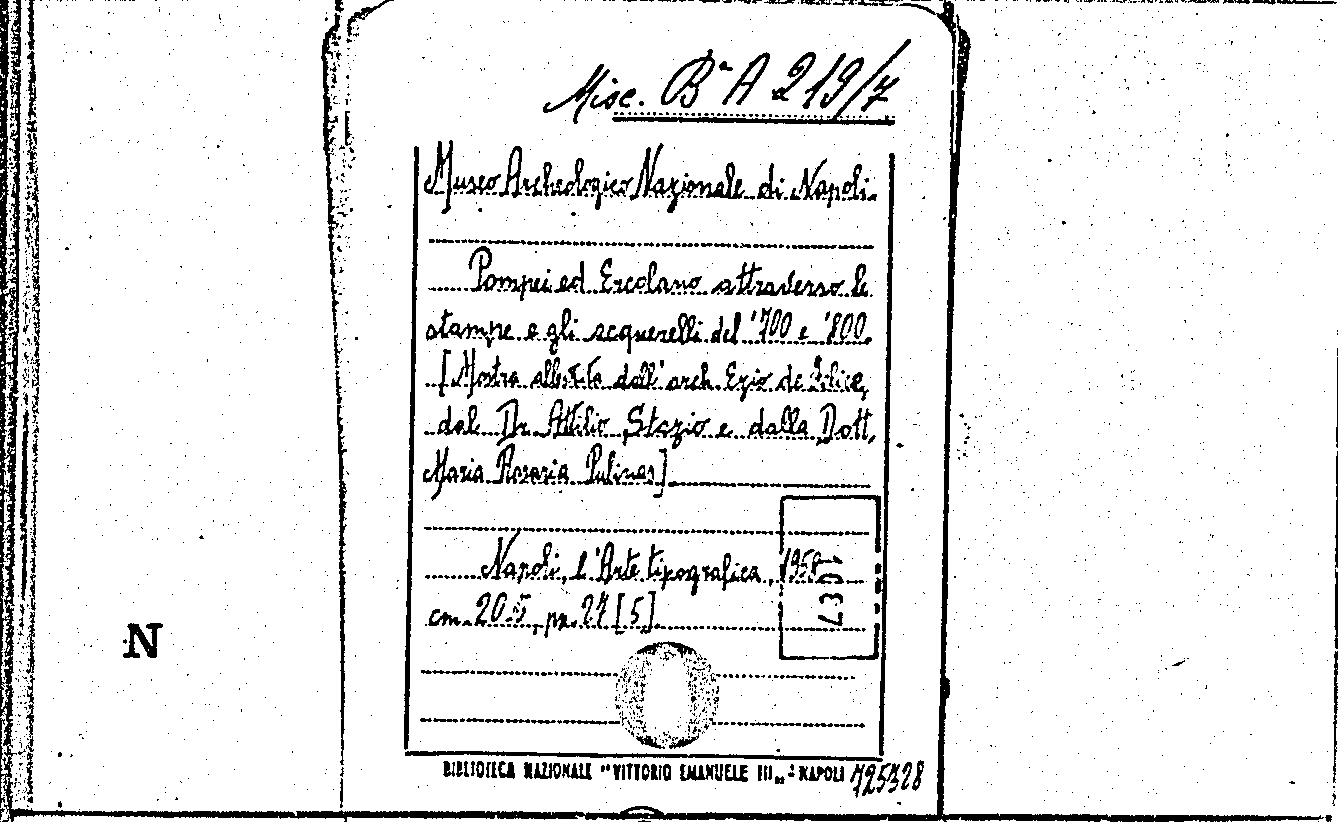 Misc. Bª A 219/7
Museo Archeologico Nazionale di Napoli.
Pompei ed Ercolano attraverso le
stampe e gli acquerelli del '700 e '800.
[Mostra allestita dall'arch. Ezio de Felice,
dal Dr. Attilio Stazio e dalla Dott.
Maria Rosaria Pulinas]
Napoli, l'Arte tipografica, 1958
cm. 20.5, pp. 27 [5].
N
BIBLIOTECA NAZIONALE "VITTORIO EMANUELE III„ - NAPOLI 725328